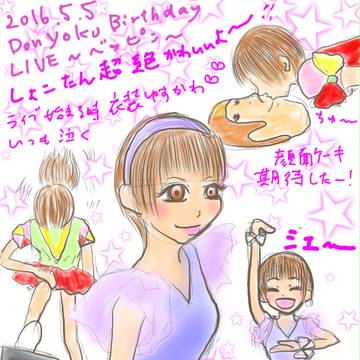 2016.5.5
Donyoku Birthday
LIVE～ベッピン～
しょこたん超絶かわいいよ～!!
ライブ始まる時衣装ずるかわ♡♡
いつも泣く
ちゅ～
顔面ケーキ
期待したー!
ジェ～